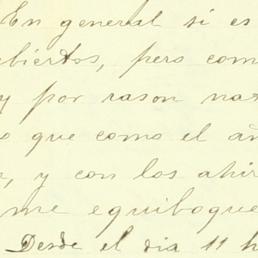 En general si es
biertos, pero com
y por rason na
o que como el añ
, y con los ahir
me equiboque
Desde el dia 11 h